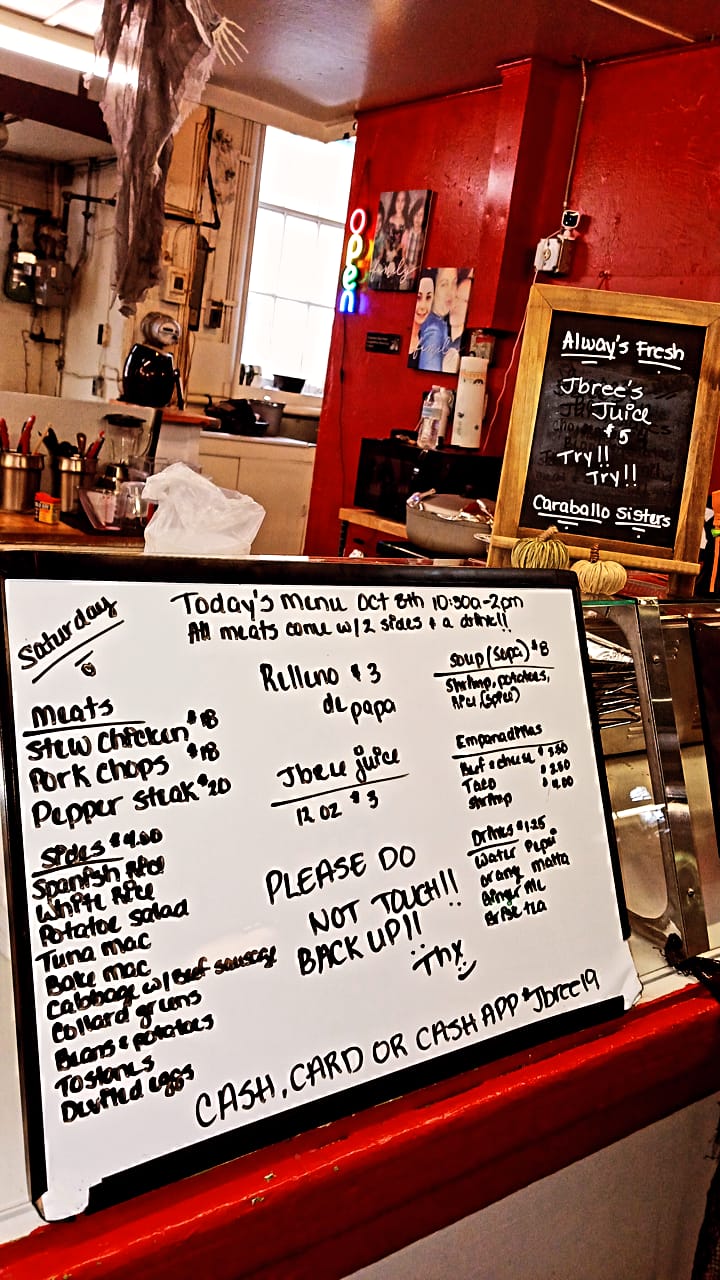 Open
family
family
Alway's Fresh
Jbree's
Juice
$5
Try!!
Try!!
Caraballo Sisters
Saturday
Today's Menu Oct 8th 10:30a-2pm
All meats come w/2 sides + a drink!!
Meats
Stew Chicken $18
Pork Chops $18
Pepper Steak $20
Sides $4.00
Spanish Rice
White Rice
Potatoe Salad
Tuna mac
Bake mac
Cabbage w/Beef sausage
Collard greens
Beans & potatoes
Tostones
Deviled eggs
Relleno $3
de papa
Jbree juice
12 oz $3
PLEASE DO
NOT TOUCH!!
BACK UP!!
Thx
Soup (Sopa) $8
Shrimp, potatoes,
Rice (spicy)
Empanadillas
Beef & cheese $3.50
Taco $3.50
Shrimp $4.00
Drinks $1.25
Water Pepsi
orang malta
Ginger Ale
Brisk tea
CASH, CARD OR CASH APP $Jbree19